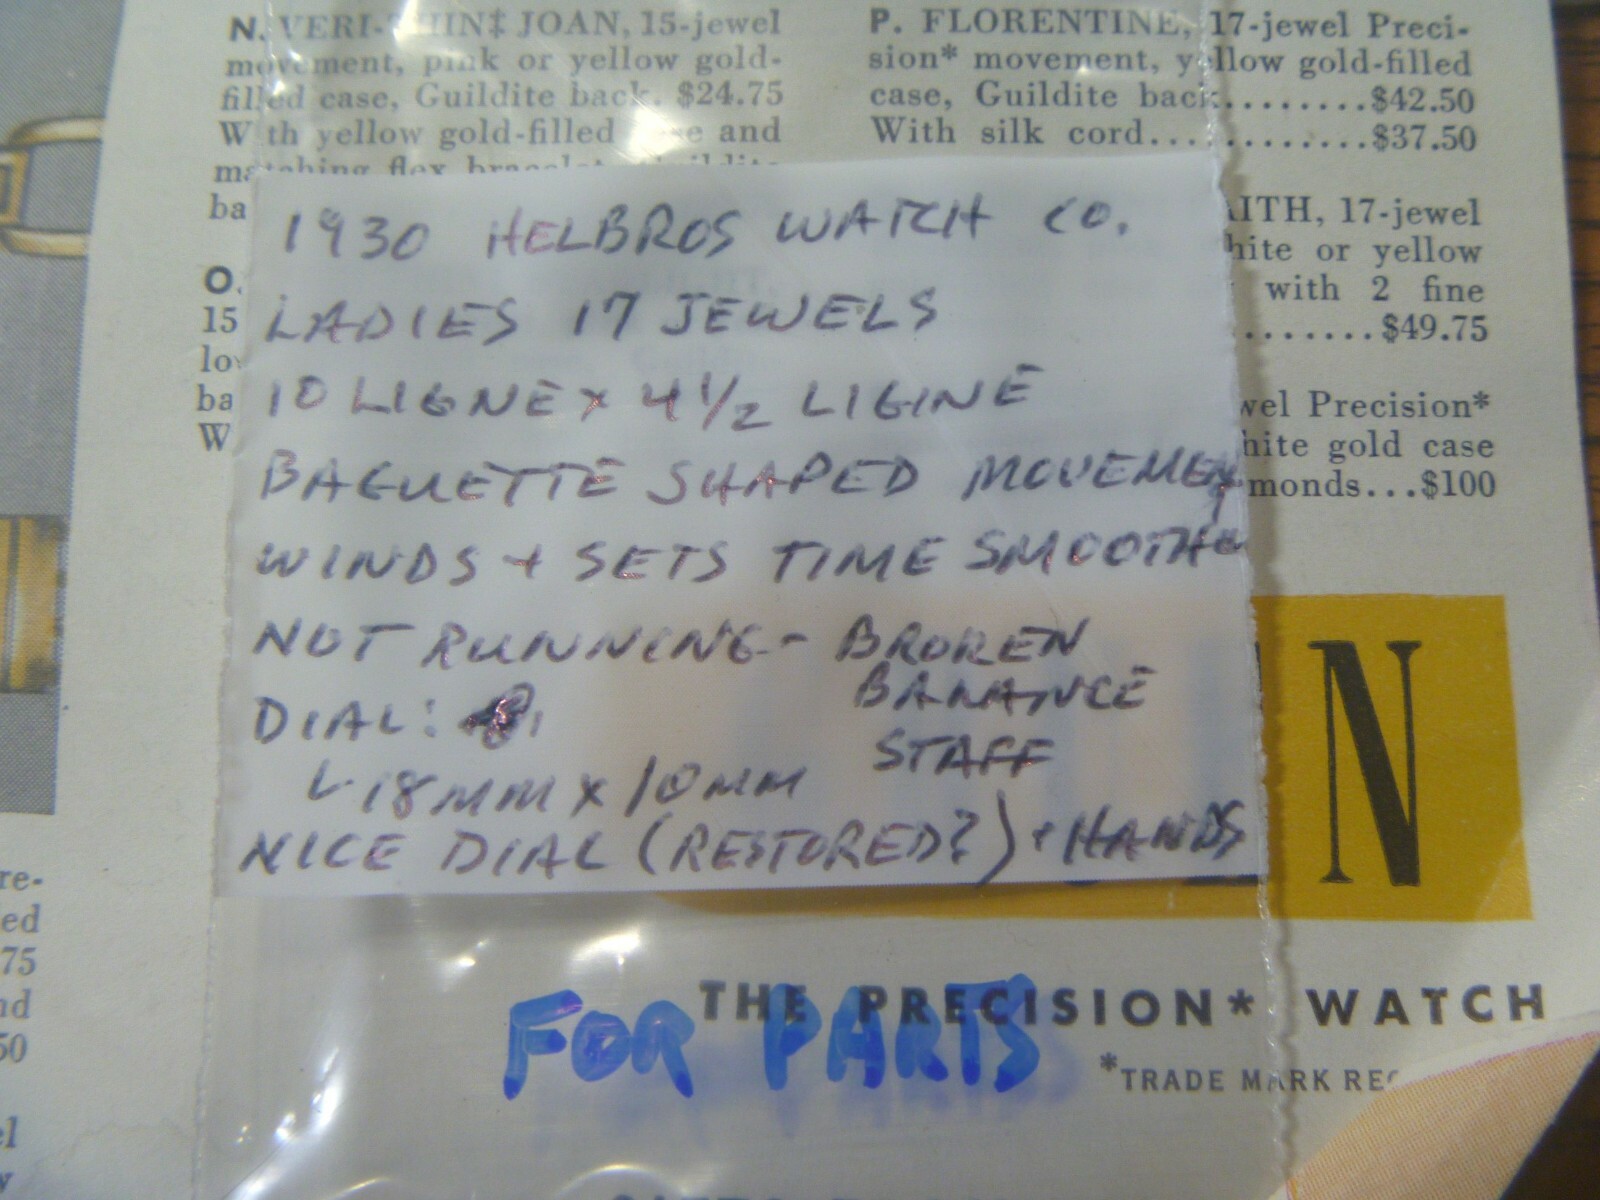 N. VERI- JOAN, 15-jewel
movement, pink or yellow gold-
filled case, Guildite back. $24.75
With yellow gold-filled and
matching flex bracelet,
ba
O.
15
lo
ba
W
P. FLORENTINE, 17-jewel Preci-
sion* movement, yellow gold-filled
case, Guildite back........$42.50
With silk cord............$37.50
AITH, 17-jewel
hite or yellow
with 2 fine
.......$49.75
wel Precision*
hite gold case
monds...$100
1930 HELBROS WATCH CO.
LADIES 17 JEWELS
10 LIGNE X 4 1/2 LIGINE
BAGUETTE SHAPED MOVEMENT
WINDS + SETS TIME SMOOTHLY
NOT RUNNING - BROKEN
BALANCE
STAFF
DIAL:
18MM X 10MM
NICE DIAL (RESTORED?) + HANDS
N
THE PRECISION* WATCH
*TRADE MARK REG
FOR PARTS
re-
ed
75
nd
50
el